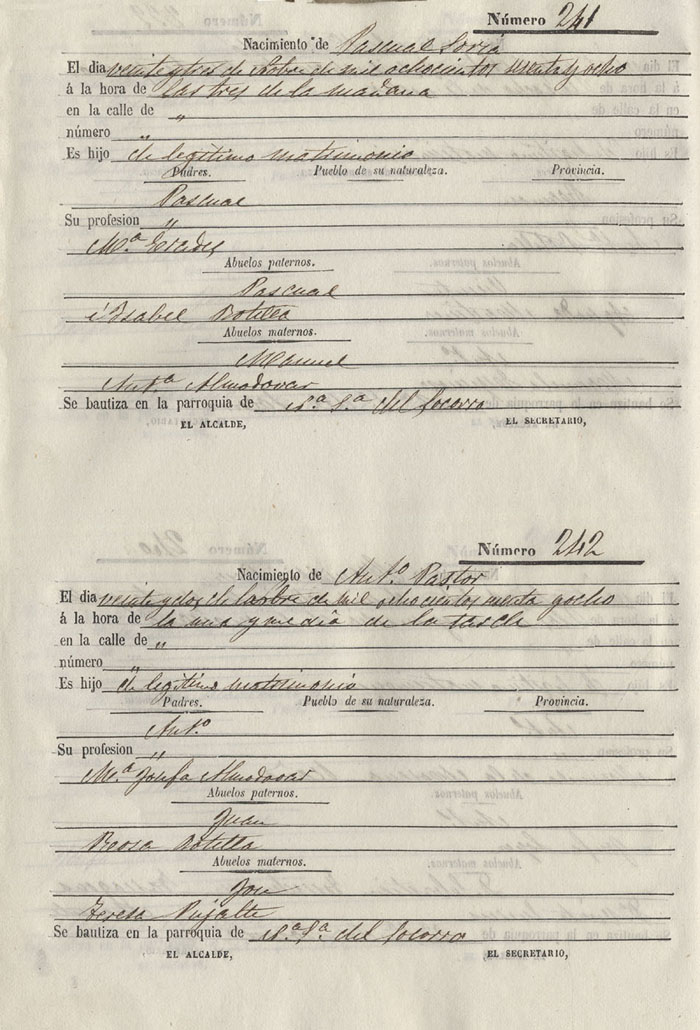 Número 241
Nacimiento de Pascual Soria
El dia veinte y tres de de mil ochocientos y ocho
á la hora de las tres de la mañana
en la calle de „
número „
Es hijo de legitimo matrimonio
Padres. Pueblo de su naturaleza. Provincia.
Pascual
Su profesion „
M.ª
Abuelos paternos.
Pascual
é Isabel Botella
Abuelos maternos.
Manuel
Ant.ª Almodovar
Se bautiza en la parroquia de N.ª S.ª del Socorro
EL ALCALDE, EL SECRETARIO,
Número 242
Nacimiento de Ant.º Pastor
El dia veinte y dos de de mil ochocientos y ocho
á la hora de la una y media de la tarde
en la calle de „
número „
Es hijo de legitimo matrimonio
Padres. Pueblo de su naturaleza. Provincia.
Ant.º
Su profesion „
M.ª Josefa Almodovar
Abuelos paternos.
Juan
Rosa Botella
Abuelos maternos.
José
Teresa Pujalte
Se bautiza en la parroquia de N.ª S.ª del Socorro
EL ALCALDE, EL SECRETARIO,